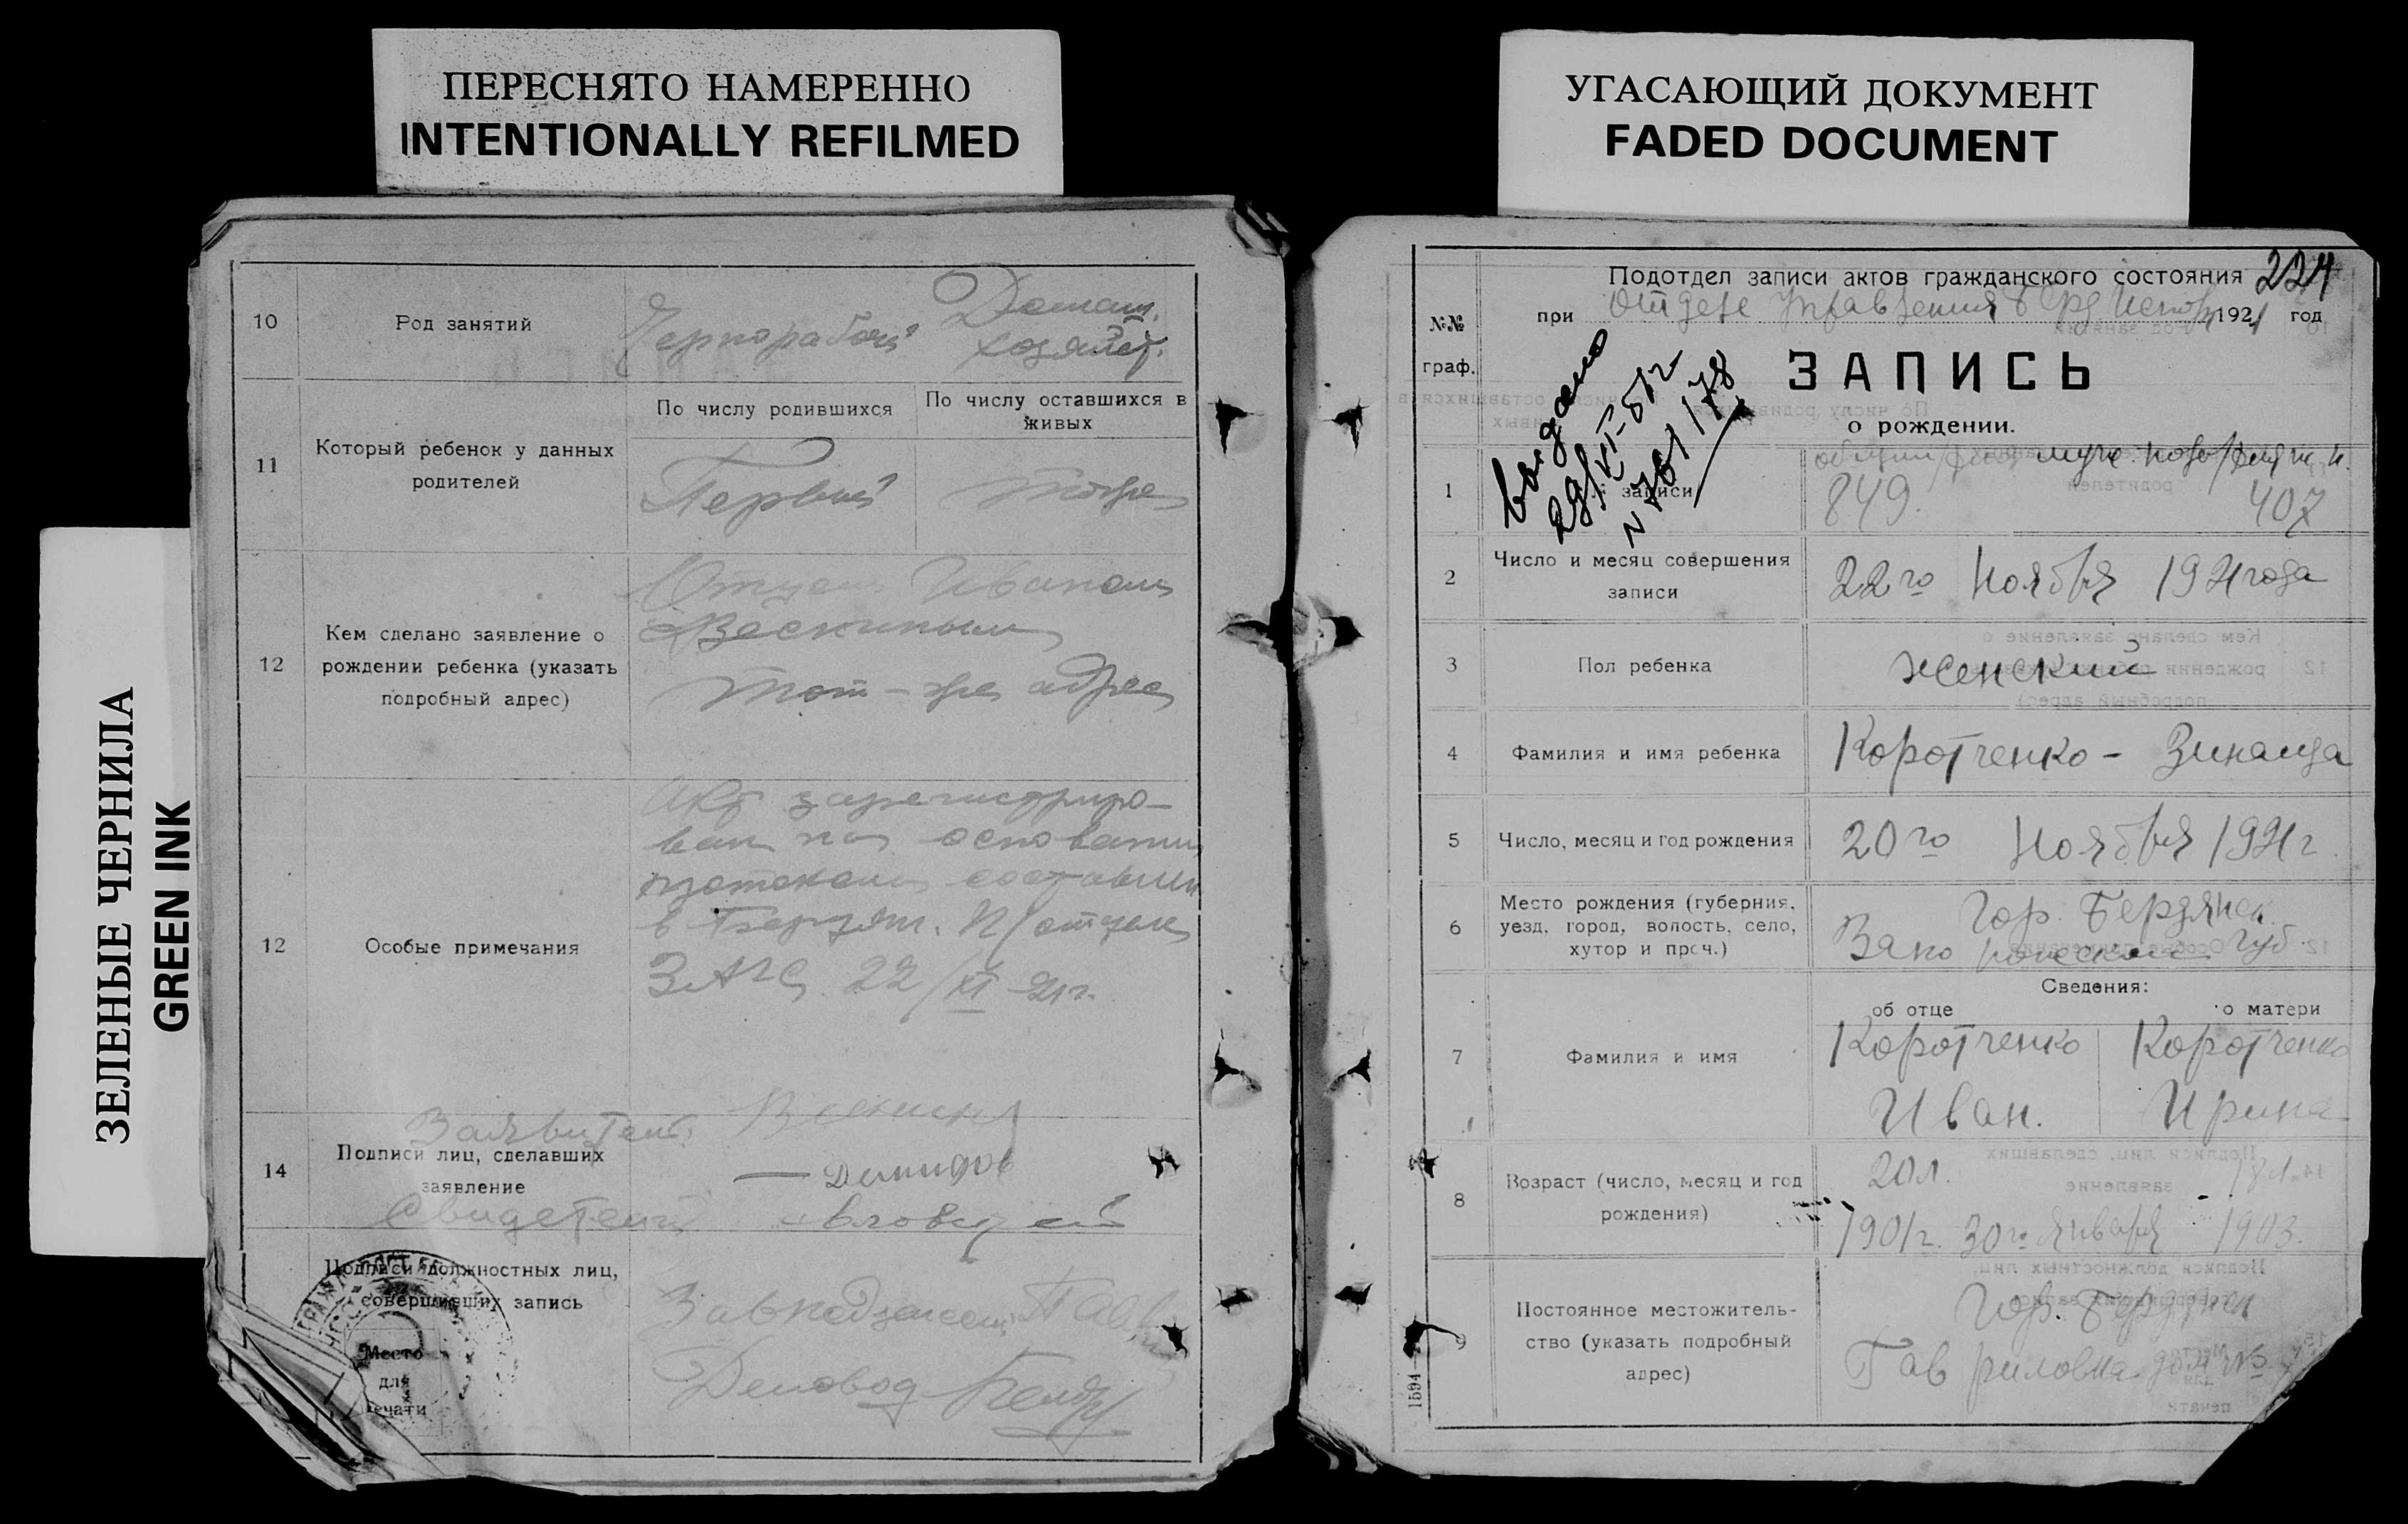 ПЕРЕСНЯТО НАМЕРЕННО
INTENTIONALLY REFILMED
УГАСАЮЩИЙ ДОКУМЕНТ
FADED DOCUMENT
ЗЕЛЕНЫЕ ЧЕРНИЛА
GREEN INK
10
Род занятий
Чернорабочий
Домашн.
хозяйст.
11
Который ребенок у данных
родителей
По числу родившихся
По числу оставшихся в
живых
Первый
тоже
12
Кем сделано заявление о
рождении ребенка (указать
подробный адрес)
Отцем Иваном
тот-же адрес
12
Особые примечания
Акт зарегистриро-
ван на основании
в Бердян. П/отделе
ЗАГС 22/XI-21г.
14
Подписи лиц, сделавших
заявление
Заявитель
Свидетели
Подписи должностных лиц,
совершивших запись
Место
для
печати
Деловод
224
Подотдел записи актов гражданского состояния
№№
граф.
при Отделе Управления Берд 1921 год
ЗАПИСЬ
о рождении.
выдано
29/XI-51г
N 761/178
1
записи
общий/ муж. ново/ жен.
849. 407
2
Число и месяц совершения
записи
22го Ноября 1921 года
3
Пол ребенка
Женский
4
Фамилия и имя ребенка
Коротченко - Зинаида
5
Число, месяц и год рождения
20го Ноября 1921г.
6
Место рождения (губерния,
уезд, город, волость, село,
хутор и проч.)
Гор. Бердянск
губ.
Сведения:
об отце
о матери
7
Фамилия и имя
Коротченко
Иван.
Коротченко
Ирина
8
Возраст (число, месяц и год
рождения)
20л. 18л.
1901г. 30го Января 1903.
9
Постоянное местожитель-
ство (указать подробный
адрес)
Гор. Бердянск
дом №
1594